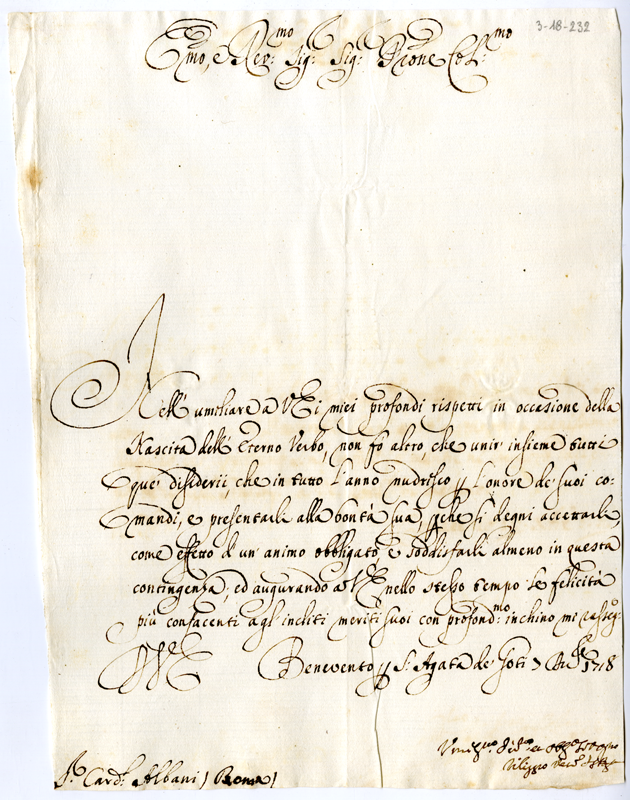 3-18-232
Emo, e Rev:mo Sig: Sig: Prone Col:mo
Nell' umiliare a VE i miei profondi rispetti in occasione della
Nascita dell' Eterno Verbo, non fo altro, che unir insieme tutti
que' disiderii, che in tutto l'anno nudrisco p l'onore de' suoi co:
mandi, e presentarli alla bontà sua, pche si degni accettarli,
come effetto d'un' animo obbligato, e soddisfarli almeno in questa
contingenza, ed augurando a VE nello stesso tempo le felicità
più confacenti agl' incliti meriti suoi con profond:mo inchino mi rasseg:o
VE
Benevento p S: Agata de' Goti 7 Xbre 1718
Filippo
Sr Card: Albani / Roma /